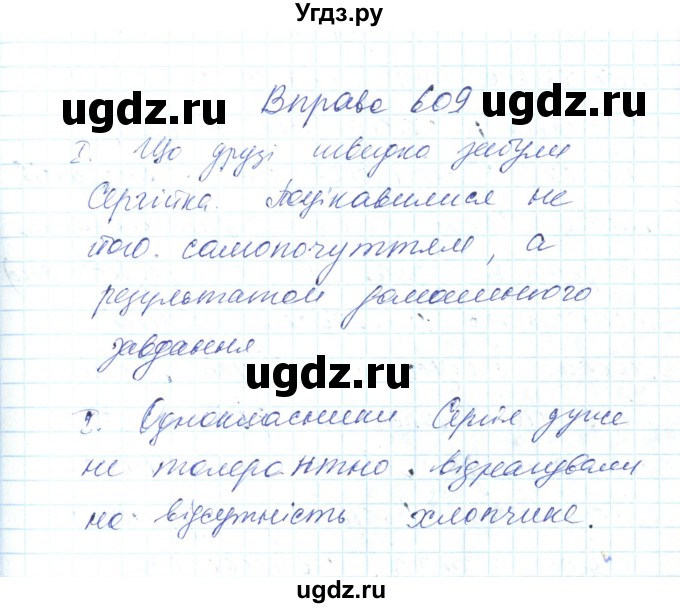 Угдз.ру
ugdz.ru
ugdz.ru
Вправа 609
I. Що друзі швидко забули
Сергійка. Поцікавилися не
його самопочуттям, а
результатом домашнього
завдання
ugdz.ru
ugdz.ru
2. Однокласники Сергія дуже
не толерантно відреагували
на відсутність хлопчика.
ugdz.ru